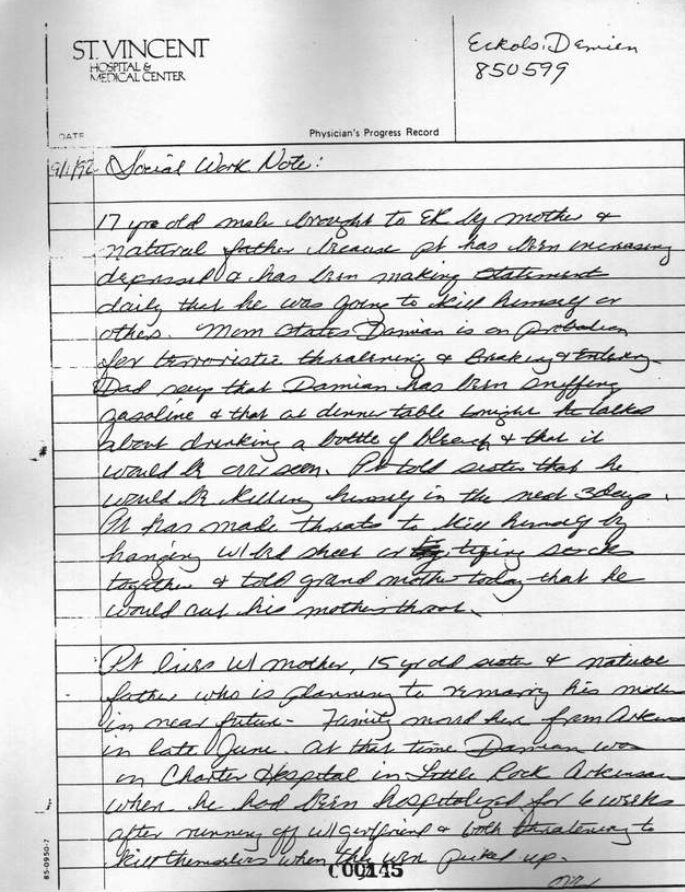 ST. VINCENT
HOSPITAL &
MEDICAL CENTER
Eckols, Damien
850599
DATE
Physician's Progress Record
9/1/92 Social Work Note:
17 yr old male brought to ER by mother &
natural father because pt has been increasing
depressed & has been making statement
daily that he was going to kill himself or
others. Mom states Damian is on probation
for terroristic threatening & Breaking & Entering.
Dad says that Damian has been sniffing
gasoline & that at dinner table tonight he talks
about drinking a bottle of bleach & that it
would be over soon. Pt told sister that he
would be killing himself in the next 3 days.
Pt has made threats to kill himself by
hanging w/ bed sheet or tying socks
together & told grand mother today that he
would cut his mothers throat.
Pt lives w/ mother, 15 yr old sister & natural
father who is planning to remarry his mother
in near future - Family moved here from Arkansas
in late June. At that time Damian was
in Charter Hospital in Little Rock Arkansas
when he had been hospitalized for 6 weeks
after running off w/ girlfriend & both threatening to
kill themselves when they were picked up.
85-0950-7